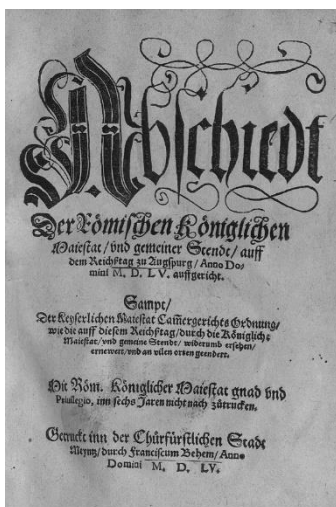 Abschiedt
Der Römischen Königlichen
Maiestat / vnd gemeiner Stende / auff
dem Reichßtag zu Augspurg / Anno Do-
mini M. D. LV. auffgericht.
Sampt /
Der Keyserlichen Maiestat Cam̃ergerichts Ordnung /
wie die auff diesem Reichßtag / durch die Königlich:
Maiestat / vnd gemeine Stende / widerumb ersehen /
ernewert / vnd an vilen orten geendert.
Mit Röm. Königlicher Maiestat gnad vnd
Priuilegio, inn sechs Jaren nicht nach zůtrucken.
Getruckt inn der Chürfürstlichen Stadt
Meyntz / durch Franciscum Behem / Anno
Domini M. D. LV.